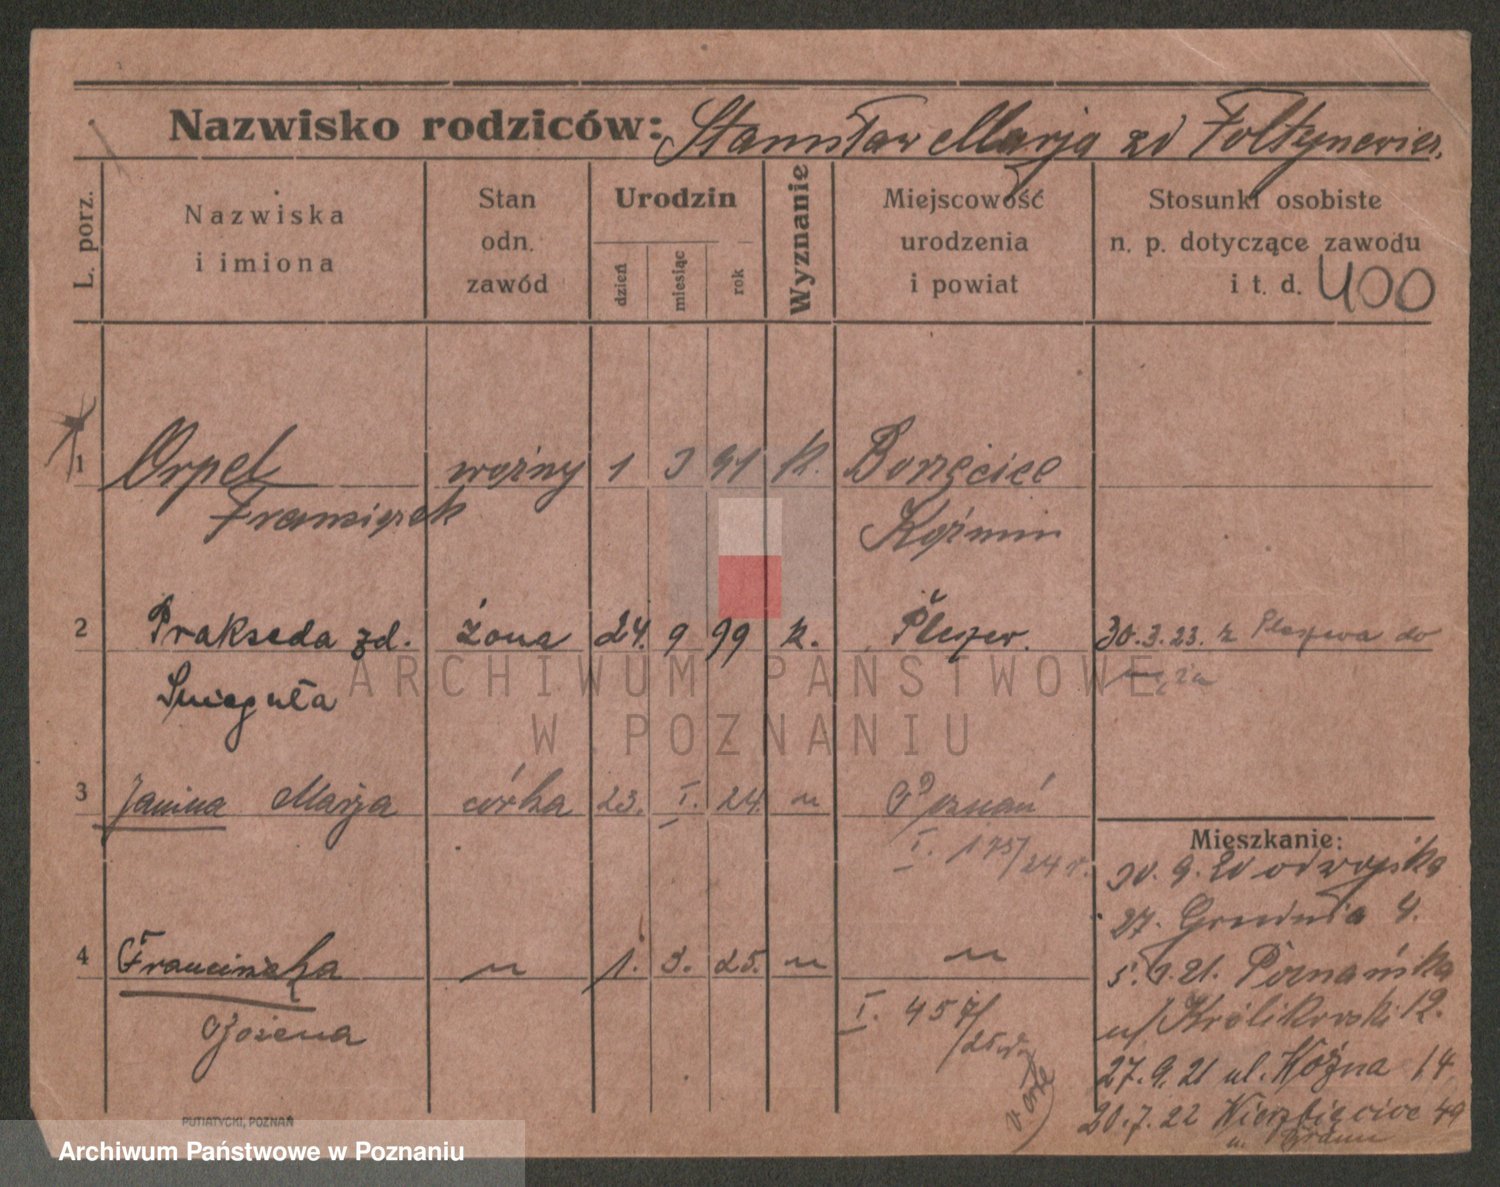 Nazwisko rodziców: Stanisław Marja zd Foltynewicz.
L. porz.
Nazwiska
i imiona
Stan
odn.
zawód
Urodzin
dzień
miesiąc
rok
Wyznanie
Miejscowość
urodzenia
i powiat
Stosunki osobiste
n. p. dotyczące zawodu
i t. d. 400
1 Orpel woźny 1 3 91 k. Borzęcice
Franciszek Koźmin
2 Prakseda zd. żona 24. 9 99 k. Pleszew. 30.3.23. z Pleszewa do
Smieguła męża
3 Janina Marja córka 23. I. 24. " Poznań
I. 175/24 r.
Mieszkanie:
30.9.20 od wojska
27. Grudnia 4.
4 Franciszka " 1. 3. 25. " "
5. 1. 21. Poznańska
Bożena I. 457/25
u/ Królikowski 12.
27.9.21 ul. Koźna 14
20.7.22 Wierzbięcice 49
u.
PUTIATYCKI, POZNAŃ
ARCHIWUM PAŃSTWOWE
W POZNANIU
Archiwum Państwowe w Poznaniu